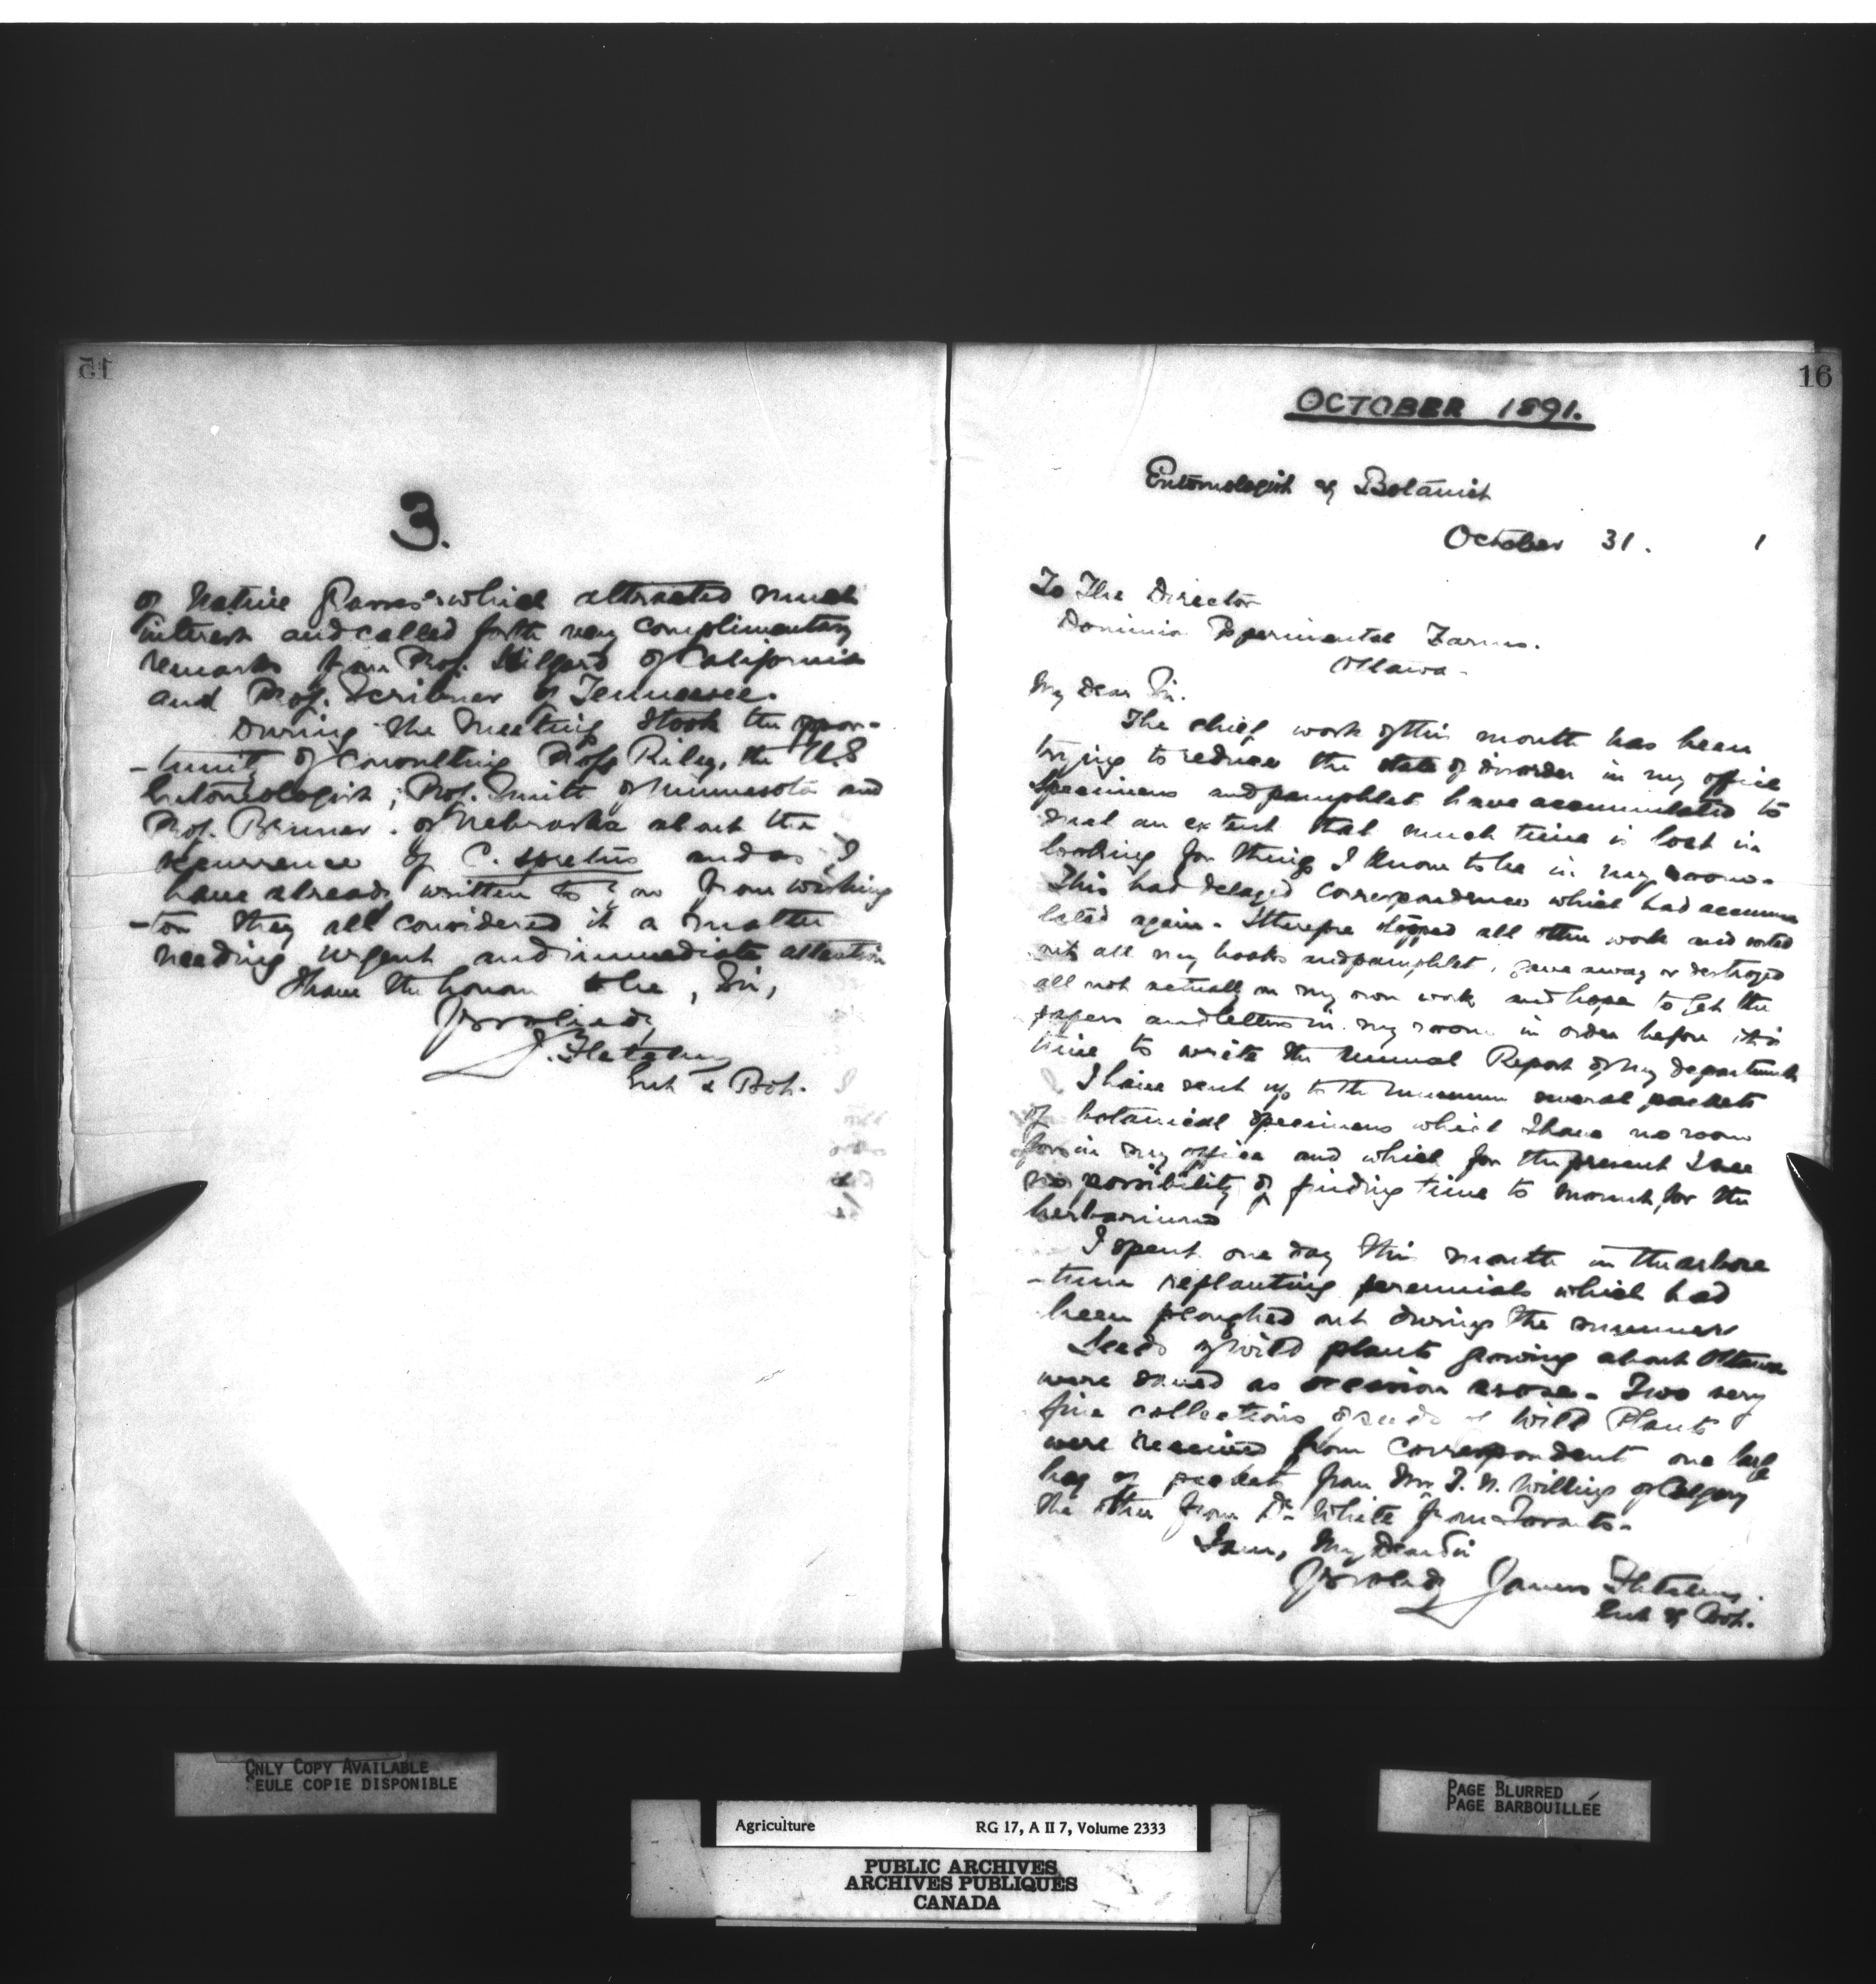 15
3.
of Native Grasses which attracted much
interest and called forth very complimentary
remarks from Prof. Hilgard of California
and Prof. Scribner of Tennessee.
During the meeting I took the oppor-
-tunity of consulting Prof. Riley, the U.S
Entomologist; Prof. Smith of Minnesota and
Prof. Bruner. of Nebraska about the
occurrence of C. spretus and as I
have already written to you from Washing
-ton they all considered it a matter
needing urgent and immediate attention
I have the honour to be, Sir,
Yr obedly
J. Fletcher
Ent & Bot.
16
OCTOBER 1891.
Entomologist & Botanist
October 31. 1
To The Director
Dominion Experimental Farms.
Ottawa.
My Dear Sir.
The chief work of this month has been
trying to reduce the state of disorder in my office
Specimens and pamphlets have accumulated to
such an extent that much time is lost in
looking for things I know to be in my room.
This had delayed correspondence which had accumu
lated again. I therefore stopped all other work and sorted
out all my books and pamphlets, gave away or destroyed
all not actually on my own work and hope to get the
papers and letters in my room in order before it is
time to write the Annual Report of my department
I have sent up to the museum several packets
of botanical specimens which I have no room
for in my office and which for the present I see
no possibility of finding time to mount for the
herbarium
I spent one day this month in the arbore
-tum replanting perennials which had
been ploughed out during the summer
Seeds of wild plants growing about Ottawa
were saved as occasion arose. Two very
fine collections of seeds of Wild Plants
were received from correspondents one large
bag or packet from Mr T. N. Willing of Calgary
the other from Dr White from Toronto.
I am, My Dear Sir
Yr obedly James Fletcher.
Ent & Bot.
ONLY COPY AVAILABLE
SEULE COPIE DISPONIBLE
PAGE BLURRED
PAGE BARBOUILLÉE
Agriculture RG 17, A II 7, Volume 2333
PUBLIC ARCHIVES
ARCHIVES PUBLIQUES
CANADA